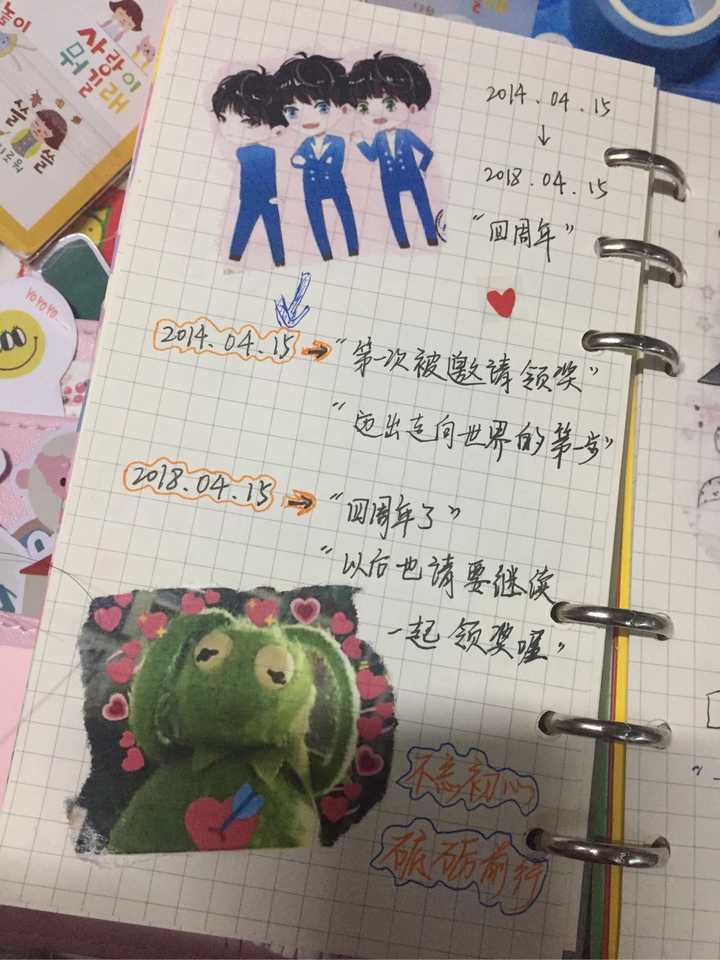 사랑이
뭐길래
쓸
쓸
YOYOYO
2014.04.15
↓
2018.04.15
“四周年”
2014.04.15 → “第一次被邀请领奖”
“迈出走向世界的第一步”
2018.04.15 → “四周年了”
“以后也请要继续
一起领奖喔”
不忘初心
砥砺前行